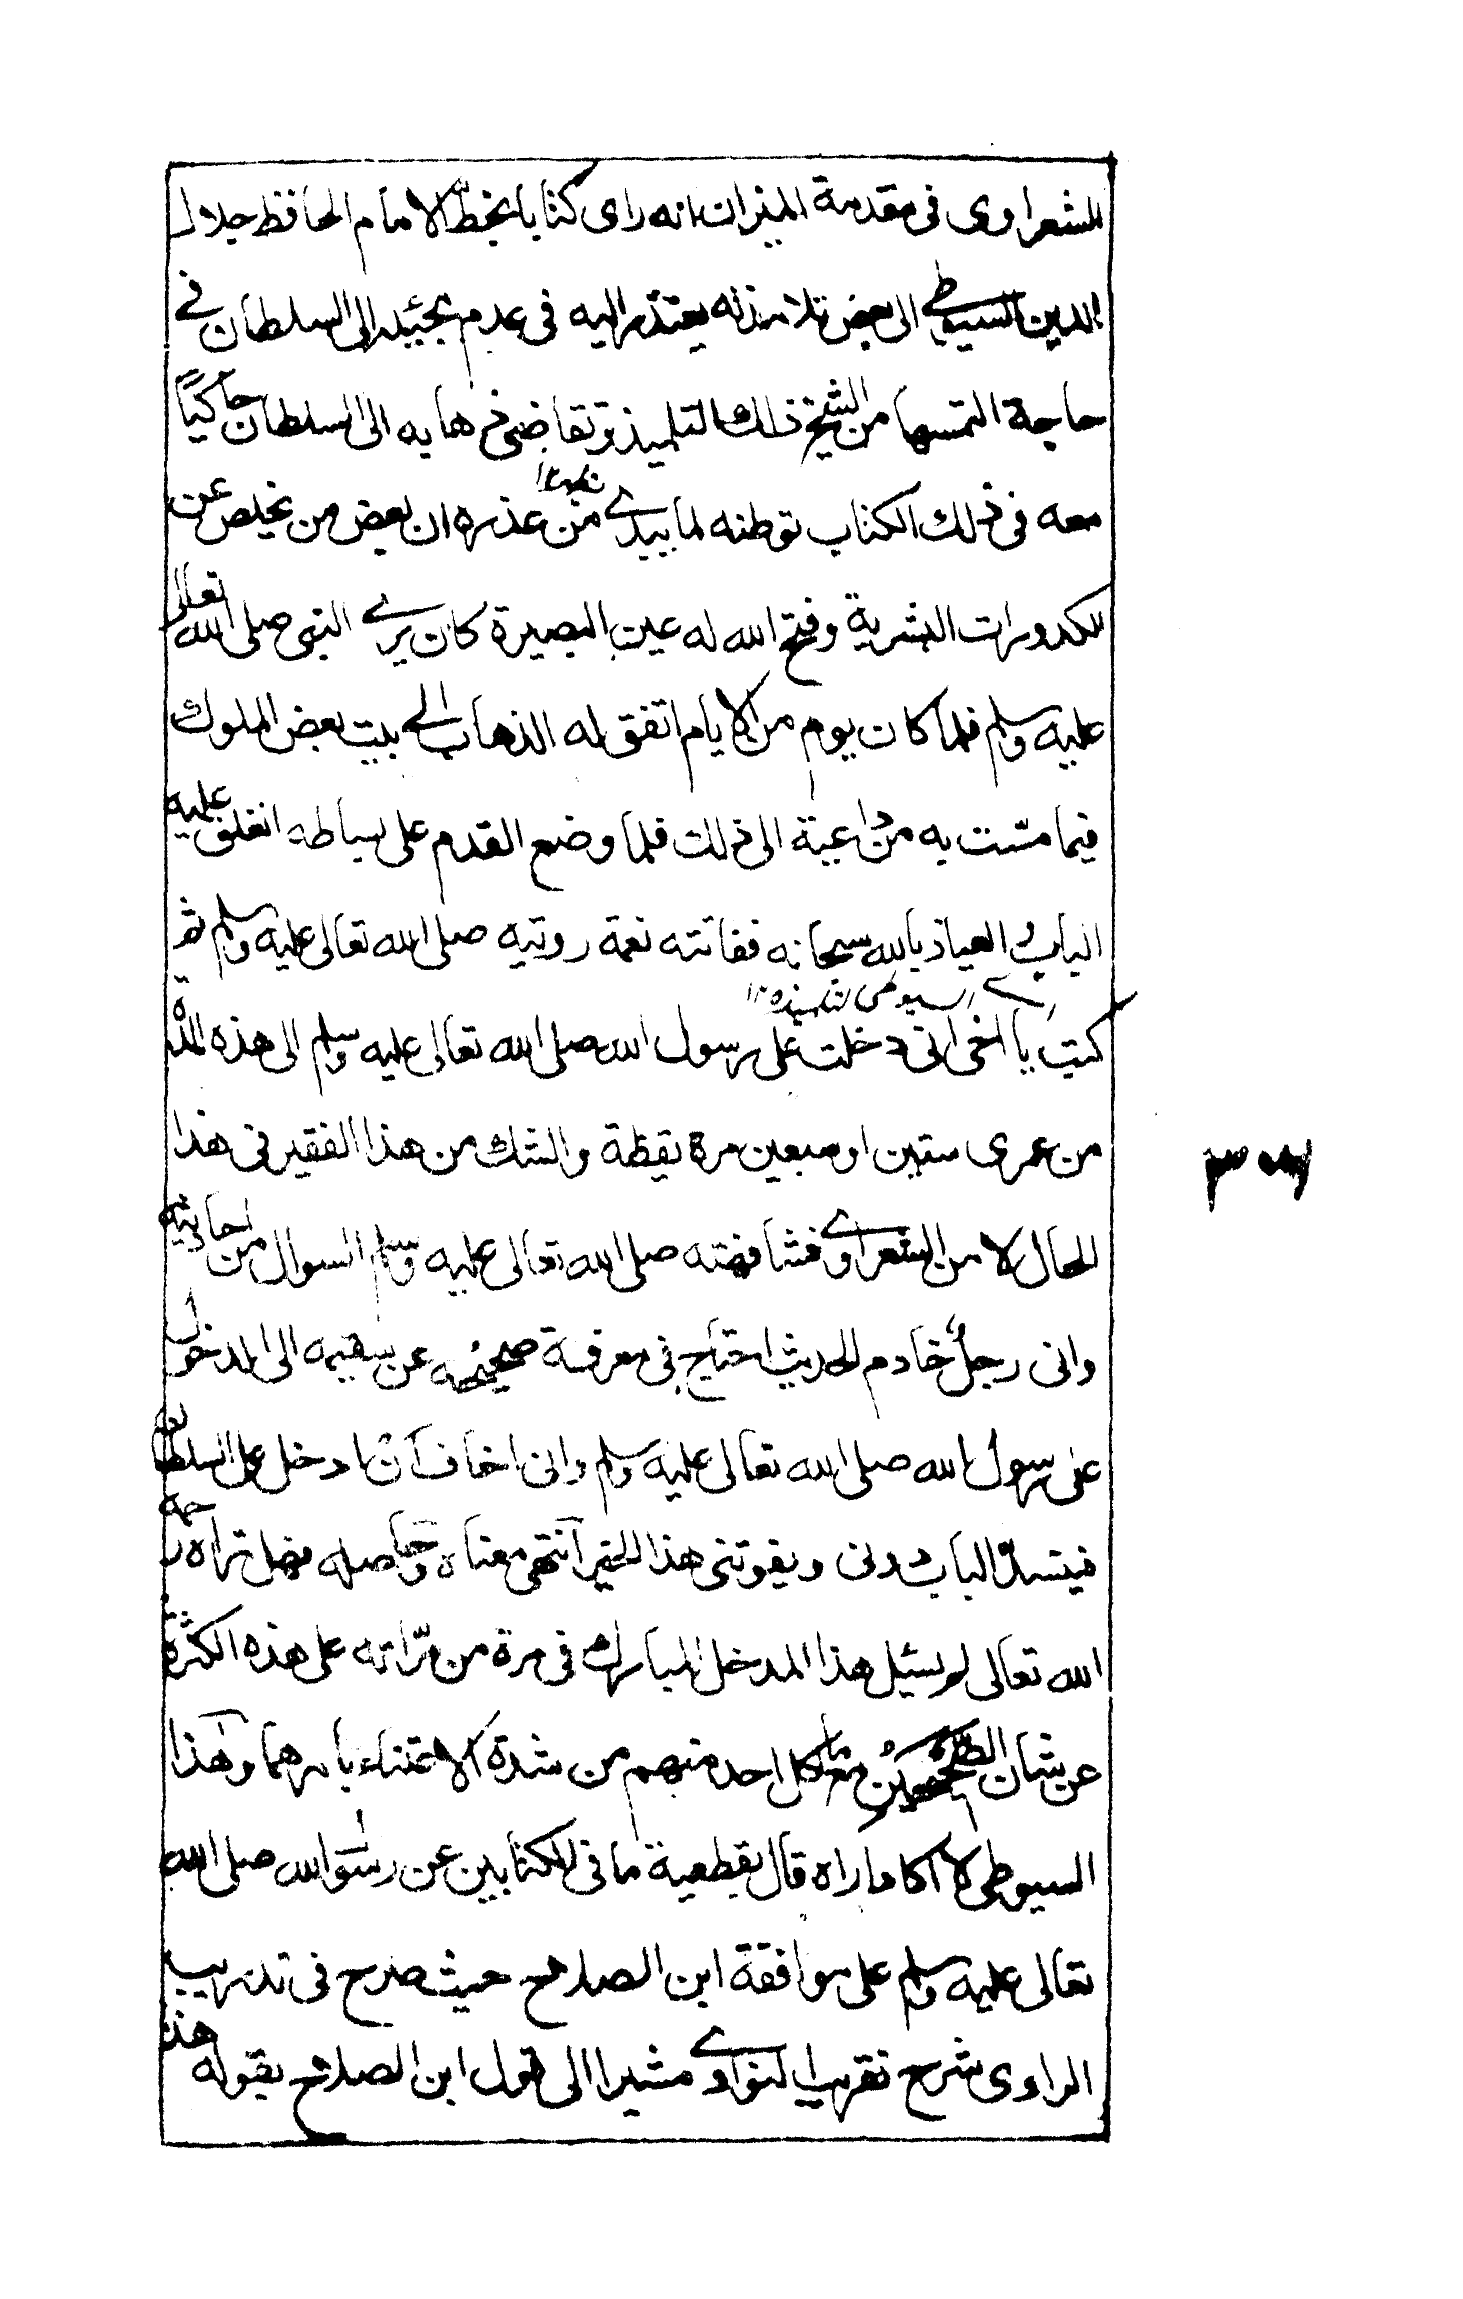 للشعراوى فى مقدمة الميزان انه راى كتابا بخط الامام الحافظ جلال
الدين السيوطى الى بعض تلامذته يعتذر اليه فى عدم مجيئه الى السلطان فى
حاجة التمسها من الشيخ ذلك التلميذ بتقاضى ذهابه الى السلطان حاكيًا
معه فى ذلك الكتاب توطئه لما يبدى من عذره ان بعض من تخلص عن
الكدورات البشرية وفتح الله له عين البصيرة كان يرى النبى صلى الله تعالى
عليه وسلم فلما كان يوم من الايام اتفق له الذهاب الى بيت بعض الملوك
فيما مست به من داعية الى ذلك فلما وضع القدم على بساطه انغلق عليه
الباب والعياذ بالله سبحانه ففاتته نعمة رويته صلى الله تعالى عليه وسلم ثم
اى السيوطى لتلميذه ١٢
كتب يا اخى انى دخلت على رسول الله صلى الله تعالى عليه وسلم الى هذه المدة
من عمرى ستين او سبعين مرة يقظة والشك من هذا الفقير فى هذا
الحال لا من الشعراوى فشافهته صلى الله تعالى عليه وسلم السوال من احاديثه
وانى رجل خادم الحديث احتاج فى معرفة صحيحه عن سقيمه الى المدخول
على رسول الله صلى الله تعالى عليه وسلم وانى اخاف ان ادخل على السلطان
فينسدّ الباب دونى ويفوتنى هذا الخير انتهى معناه وحاصله فهل تراه رحمه
الله تعالى لم يسئل هذا المدخل المبارك فى مرة من مرّاته على هذه الكثرة
عن شان الصحيحين مع ما لكل احد منهم من شدة الاعتناء بامرهما وهذا
السيوطى لا اكاد اراه قال بقطعية ما فى الكتابين عن رسول الله صلى الله
تعالى عليه وسلم على موافقة ابن الصلاح حيث صرح فى تدريب
الراوى شرح تقريب النواوى مشيرا الى قول ابن الصلاح بقوله هذا